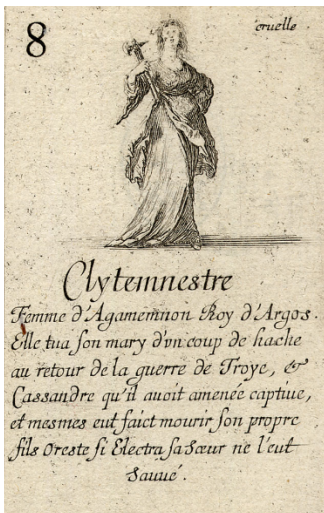 8
cruelle
Clytemnestre
Femme d'Agamemnon Roy d'Argos.
Elle tua son mary d'vn coup de hache
au retour de la guerre de Troye, &
Cassandre qu'il auoit amenée captiue,
et mesmes eut faict mourir son propre
fils Oreste si Electra sa Sœur ne l'eut
Sauué.